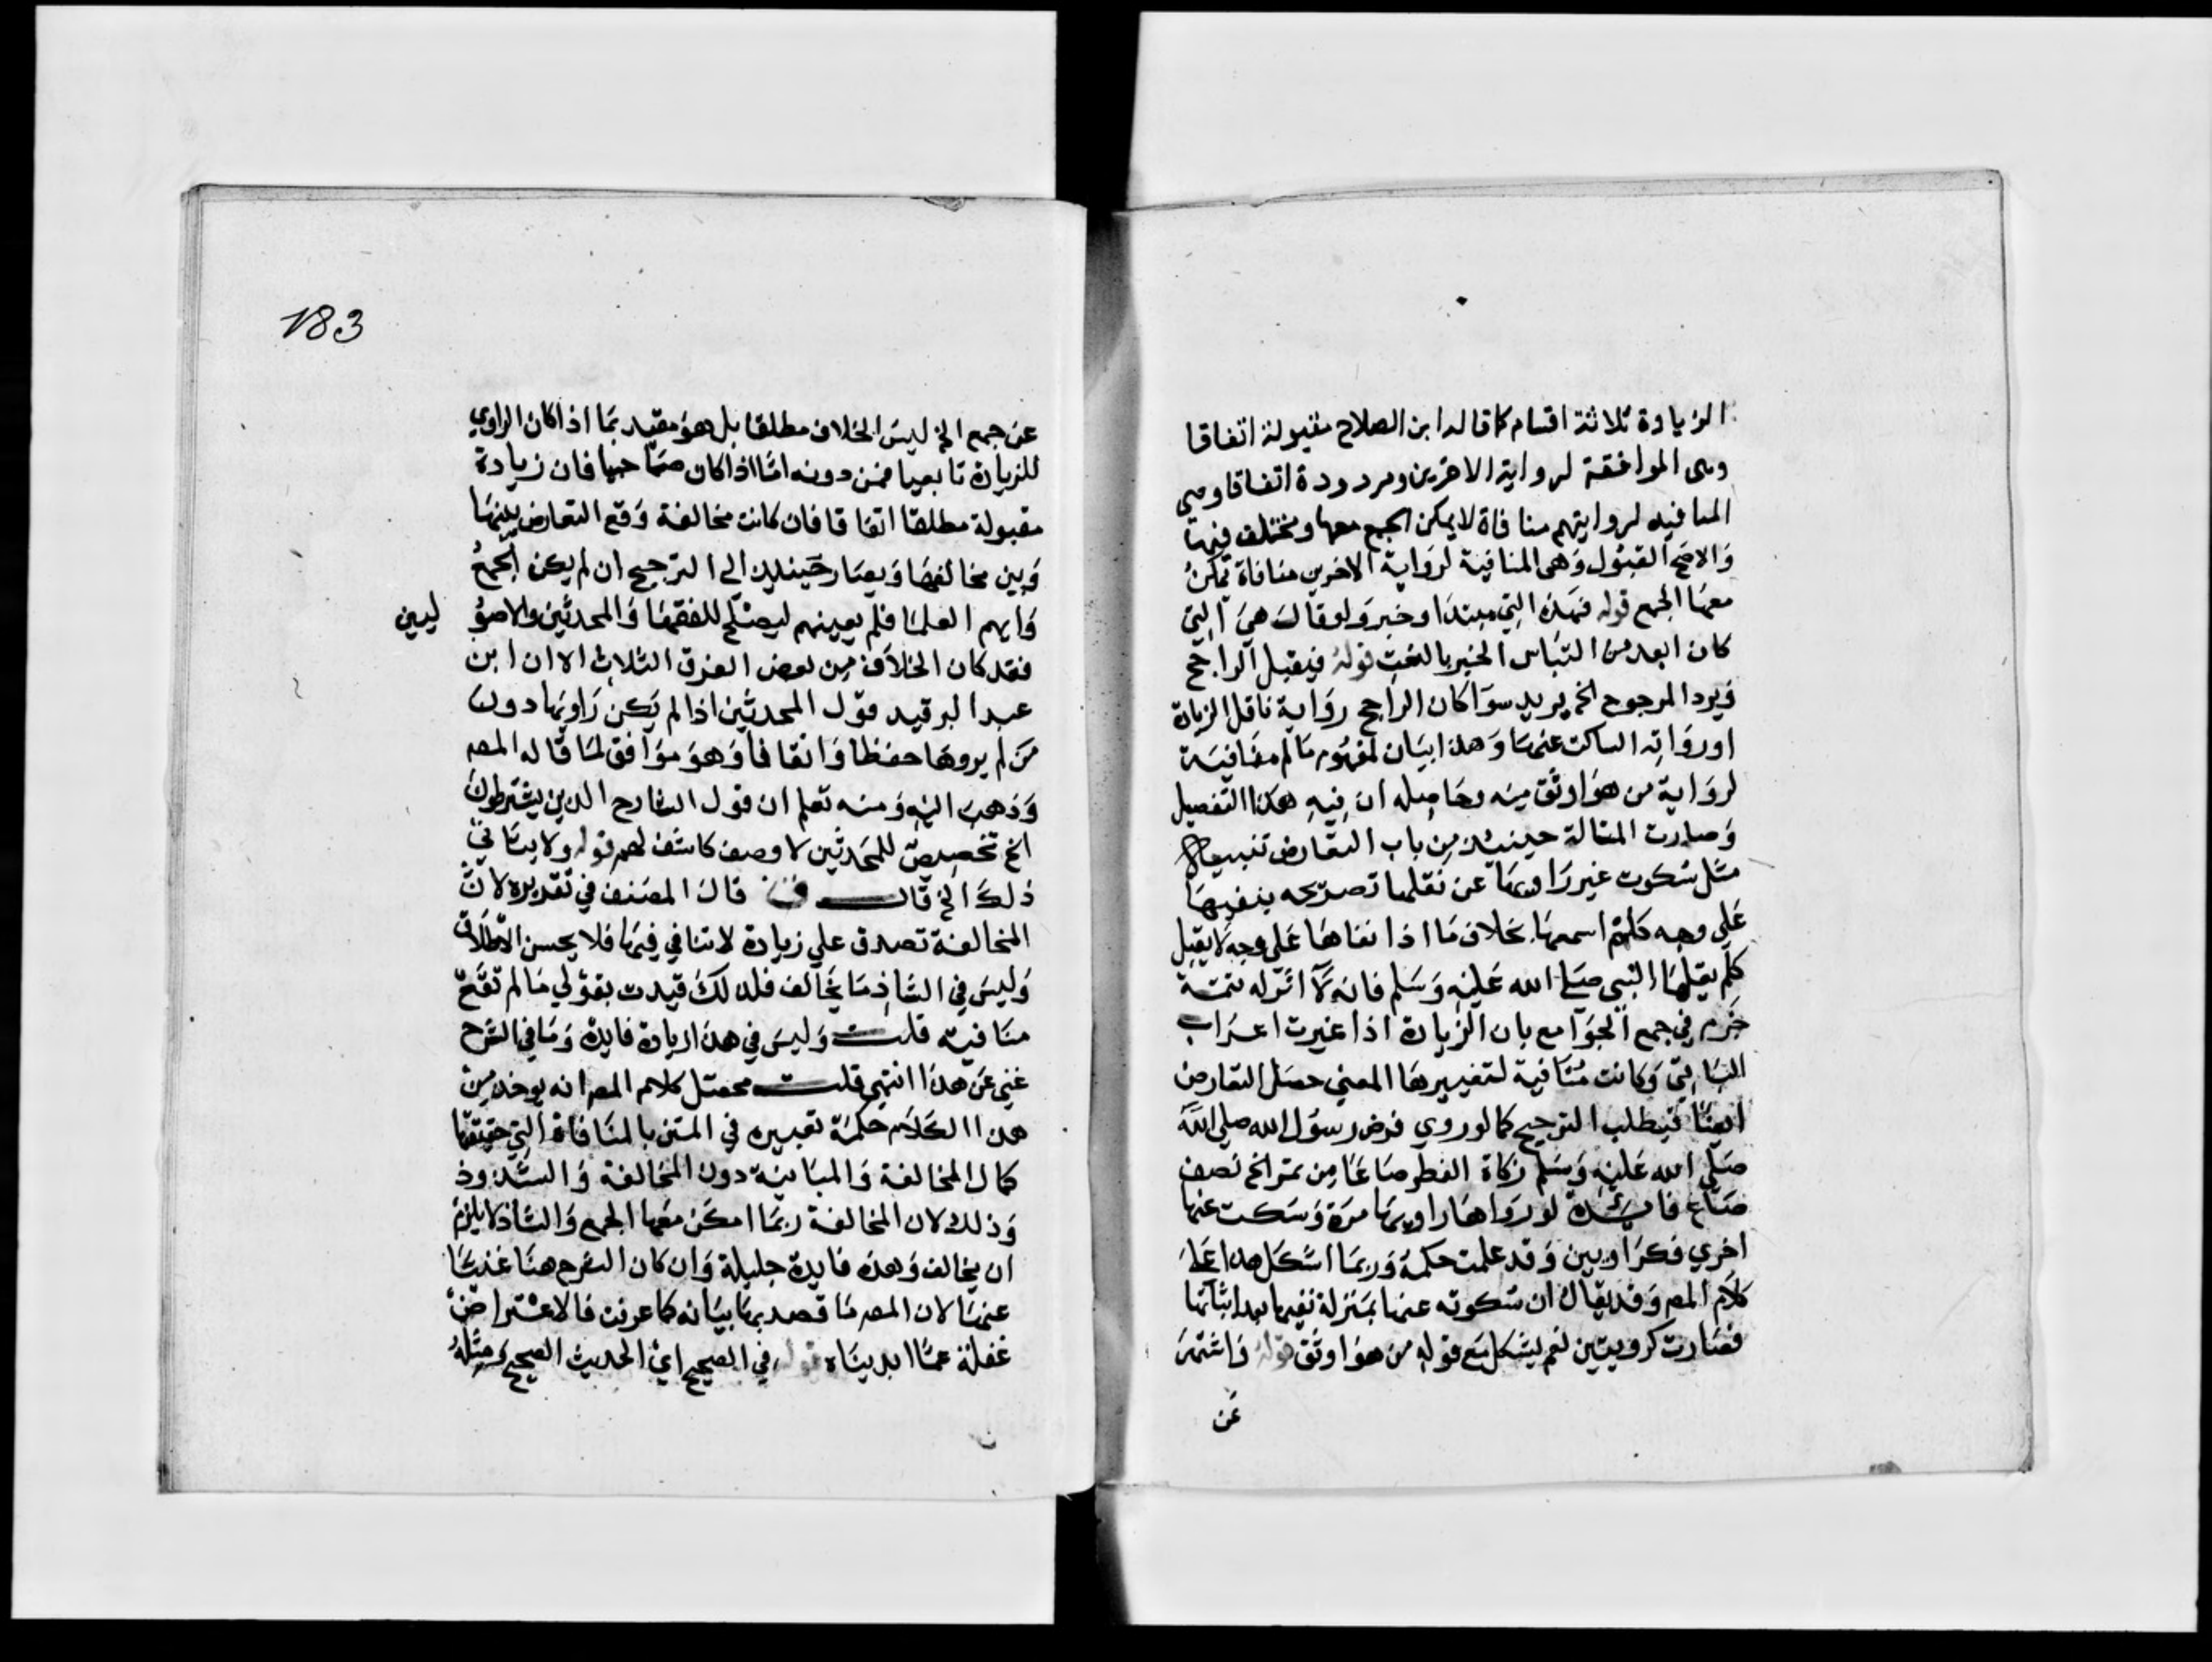 الزيادة ثلاثة اقسام كما قاله ابن الصلاح مقبولة اتفاقا
وهى الموافقة لرواية الاخرين ومردودة اتفاقا وهي
المنافيه لروايتهم منافاة لا يمكن الجمع معها ومختلف فيها
والاصح القبول وهى المنافية لرواية الاخرين منافاة يمكن
معها الجمع قوله فهذه التي مبتدا وخبر ولو قال هي التي
كان ابعد من التباس الخبر بالنعت قوله فيقبل الراجح
ويرد المرجوح الخ يريد سوا كان الراجح رواية ناقل الزيادة
او رواته الساكت عنها وهذا بيان لمفهوم مالم منافية
لرواية من هو اوثق منه وحاصله ان فيه هذا التفصيل
وصارت المسالة حينئذ من باب التعارض تنبيهان
مثل سكوت غير راويها عن نقلها تصريحه بنفيها
على وجه كلم اسمعها بخلاف ما اذا نفاها على وجه لا يقبل
كلم يقلها النبى صلى الله عليه وسلم فانه لا اثر له تتمة
جزم في جمع الجوامع بان الزيادة اذا غيرت اعراب
الباقي وكانت منافية لتغييرها المعنى حصل التعارض
ايضا فيطلب الترجيح كما لو روي فرض رسول الله صلى الله
صلى الله عليه وسلم زكاة الفطر صاعا من تمر الخ نصف
صاع فائدة لو رواها راويها مرة وسكت عنها
اخري فكراويين وقد علمت حكمه وربما اشكل هذا على
كلام المص وقد يقال ان سكوته عنها بمنزلة نفيها بعد اثباتها
فصارت كرويتين نعم يشكل مع قوله من هو اوثق قوله واشتهر
عن
183
عن جمع الخ ليس الخلاف مطلقا بل هو مقيد بما اذا كان الراوي
للزيادة تابعيا فمن دونه اما اذا كان صحابيا فان زيادة
مقبولة مطلقا اتفاقا فان كانت مخالفة وقع التعارض بينها
وبين مخالفها ويصار حينئذ الى الترجيح ان لم يكن الجمع
وابهم العلما فلم يعينهم ليصلح للفقها والمحدثين والاصو
ليين
فقد كان الخلاف من بعض الفرق الثلاث الا ان ابن
عبد البر قيد قول المحدثين اذا لم يكن راويها دون
من لم يروها حفظا واتقانا وهو موافق لما قاله المص
وذهب اليه ومنه تعلم ان قول الشارح الذين يشترطون
الخ تخصيص للمحدثين لا وصف كاشف لهم قوله ولا يتاتى
ذلك الخ قال ق قال المصنف في تقديره لان
المخالفة تصدق علي زيادة لا تنافي فيها فلا يحسن الاطلاق
وليس في الشاذ ما يخالف فلذلك قيدت بقولي مالم تقع
منافية قلت وليس في هذا الزيادة فايدة وما في الشرح
غني عن هذا انتهي قلت محصل كلام المص انه يوخذ من
هذا الكلام حكمة تعبيره في المتن بالمنافاة التي حقيقتها
كمال المخالفة والمباينة دون المخالفة والشذوذ
وذلك لان المخالفة ربما امكن معها الجمع والشاذ لا يلزم
ان يخالف وهذه فايدة جليلة وان كان الشرح هنا غنيا
عنها لان المص ما قصد بها بيانه كما عرفت فالاعتراض
غفلة عما ابديناه قوله في الصحيح اي الحديث الصحيح ومثله